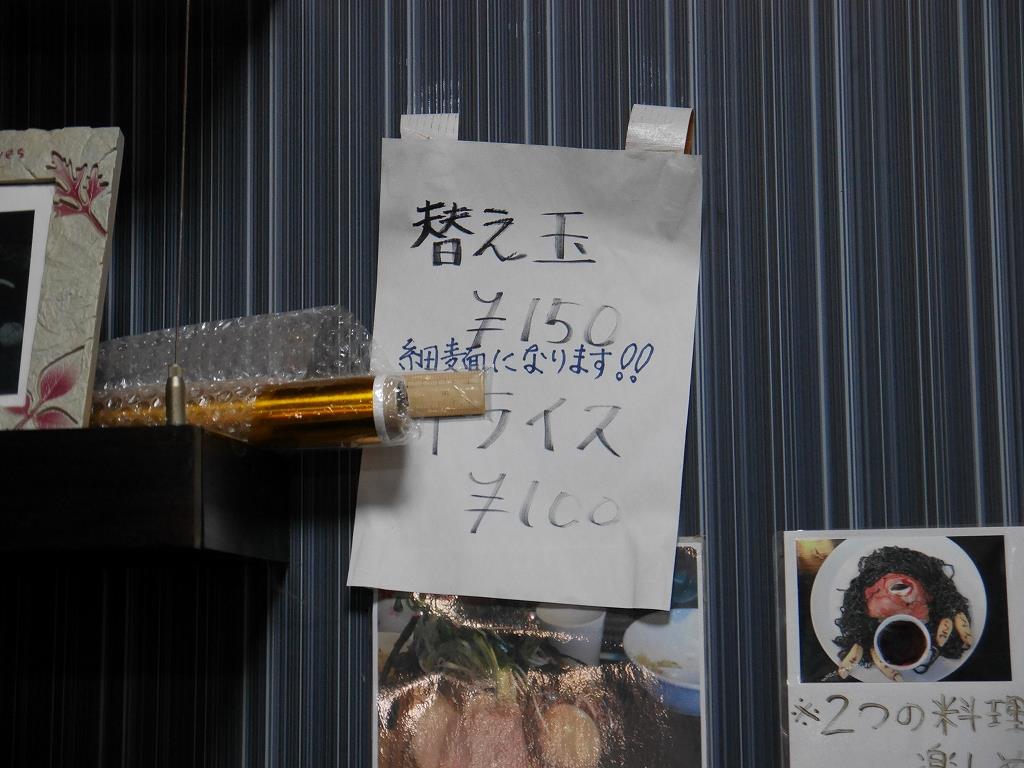 替え玉
¥150
細麺になります!!
ライス
¥100
※2つの料理
楽し